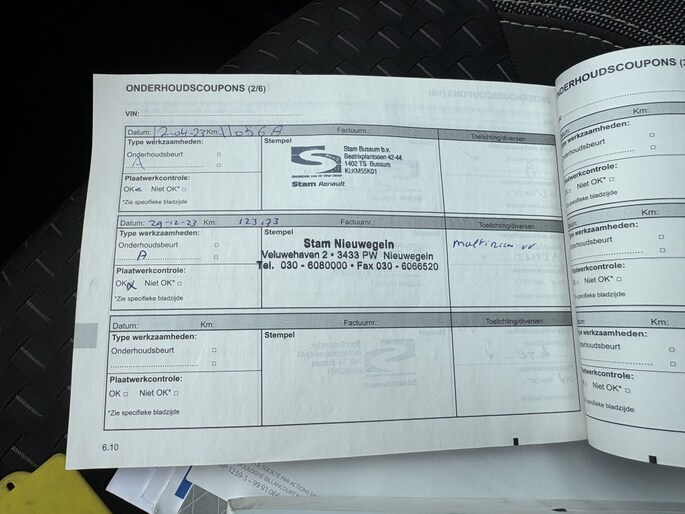 ONDERHOUDSCOUPONS (2/6)
VIN:
Datum: 2-04-23 Km: Factuurnr.: Toelichting/diversen
Type werkzaamheden:
Onderhoudsbeurt
A
Plaatwerkcontrole:
OK Niet OK*
*Zie specifieke bladzijde
Stempel
Stam Bussum b.v.
Beatrixplantsoen 42-44
1402 TS Bussum
KI:KM55K01
Stam Renault
Datum: 29-12-23 Km: 123,73 Factuurnr.: Toelichting/diversen
Type werkzaamheden:
Onderhoudsbeurt
A
Plaatwerkcontrole:
OK Niet OK*
*Zie specifieke bladzijde
Stempel
Stam Nieuwegein
Veluwehaven 2 • 3433 PW Nieuwegein
Tel. 030 - 6080000 • Fax 030 - 6066520
multiriem vv
Datum: Km: Factuurnr.: Toelichting/diversen
Type werkzaamheden:
Onderhoudsbeurt
Plaatwerkcontrole:
OK Niet OK*
*Zie specifieke bladzijde
Stempel
6.10
ONDERHOUDSCOUPONS
Km:
werkzaamheden:
Niet OK*
specifieke bladzijde
Km:
werkzaamheden:
Niet OK*
specifieke bladzijde
Km:
werkzaamheden:
Niet OK*
bladzijde
SOCIÉTÉ PAR ACTIONS